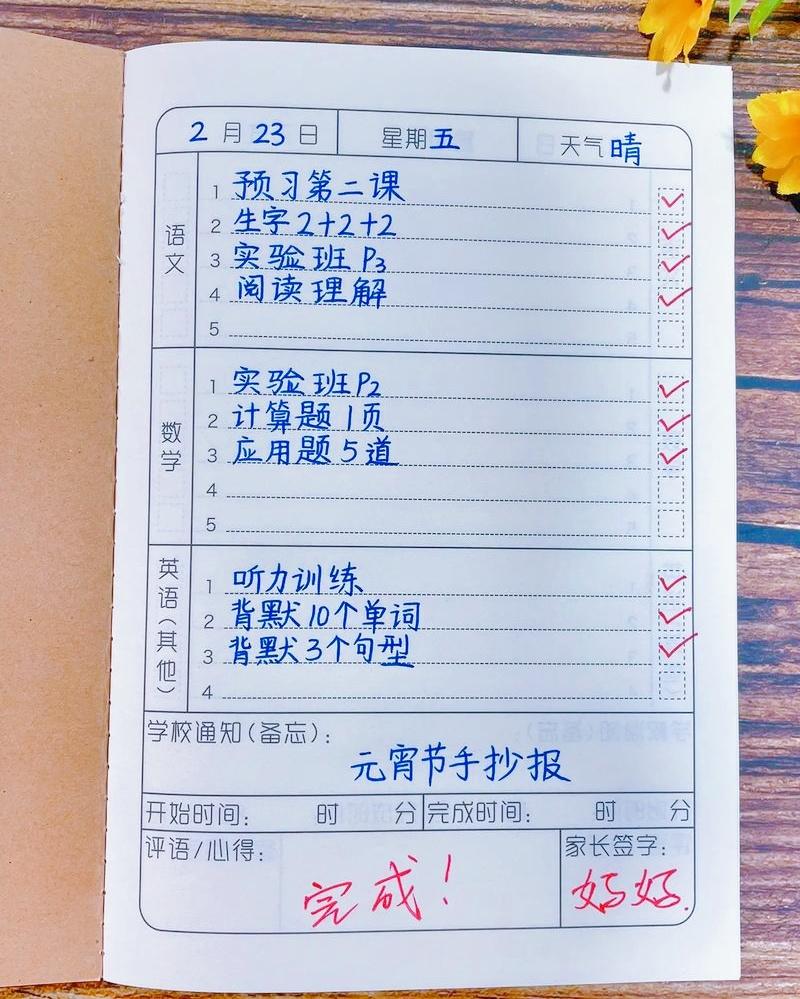 2月23日 星期五 天气晴
语文
1 预习第二课
2 生字2+2+2
3 实验班P3
4 阅读理解
5
数学
1 实验班P2
2 计算题1页
3 应用题5道
4
5
英语(其他)
1 听力训练
2 背默10个单词
3 背默3个句型
4
学校通知(备忘):
元宵节手抄报
开始时间: 时 分 完成时间: 时 分
评语/心得: 家长签字:
完成! 妈妈.